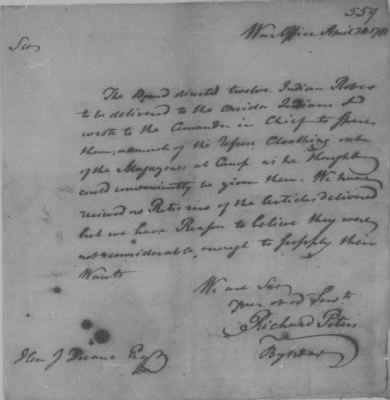 559
War Office April 20 1781
Sir
The Board directed twelve Indian Robes
to be delivered to the Oneida Indians &
wrote to the Commander in Chief to spare
them as much of the refuse Cloathing out
of the Magazines at Camp as he thought
could conveniently be given them. We have
received no Returns of the Articles delivered
but we have Reason to believe they were
not considerable enough to supply their
Wants
We are Sir
Your obed Servts
Richard Peters
By order
Hon J Duane Esqr